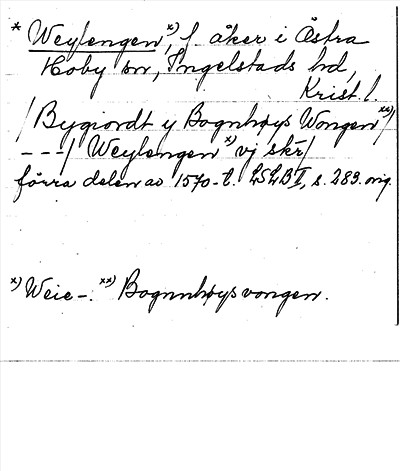 * Weylengen x), f åker i Östra
Hoby sn, Ingelstads hd,
Krist. l.
/Bygiordt y Bognhøys Wongen xx)/
---/ Weylengen x) vj skr/
förra delen av 1570-t. LSLB II, s. 283. orig.
x) Weie-. xx) Bognnhøysvongen.